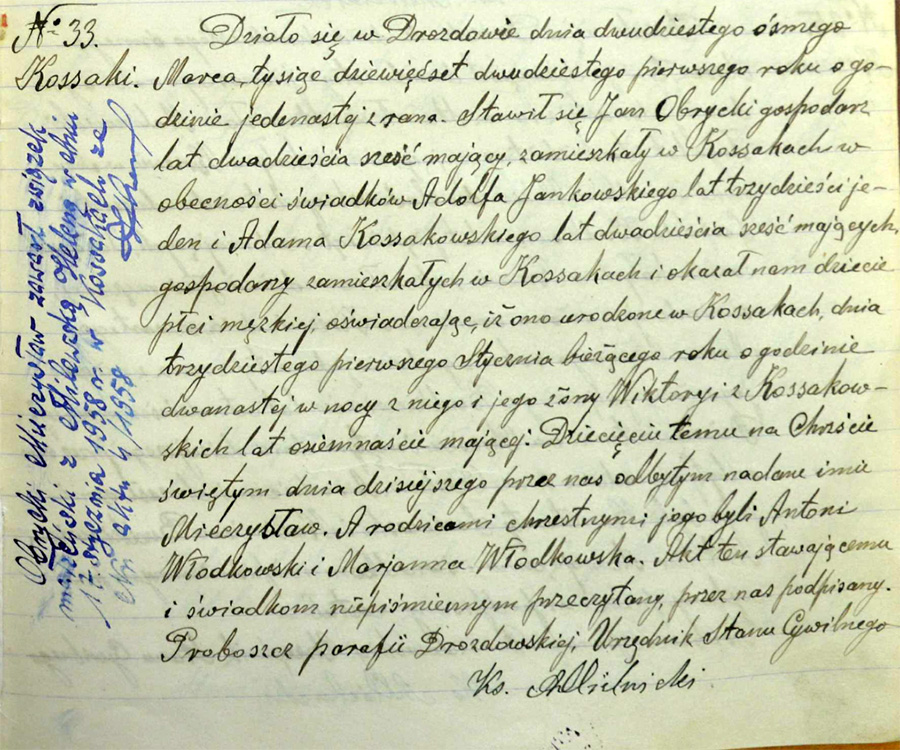 № 33.
Kossaki.
Działo się w Drozdowie dnia dwudziestego ósmego
Marca, tysiąc dziewięćset dwudziestego pierwszego roku o go-
dzinie jedenastej z rana. Stawił się Jan Obrycki gospodarz
lat dwadzieścia sześć mający, zamieszkały w Kossakach w
obecności świadków Adolfa Jankowskiego lat trzydzieści je-
den i Adama Kossakowskiego lat dwadzieścia sześć mających,
gospodarzy zamieszkałych w Kossakach i okazał nam dziecię
płci męzkiej, oświadczając, iż ono urodzone w Kossakach, dnia
trzydziestego pierwszego Stycznia bieżącego roku o godzinie
dwanastej w nocy z niego i jego żony Wiktoryi z Kossakow-
skich lat osiemnaście mającej. Dziecięciu temu na Chrzcie
świętym dnia dzisiejszego przez nas odbytym nadane imie
Mieczysław. A rodzicami chrzestnymi jego byli Antoni
Włodkowski i Marjanna Włodkowska. Akt ten stawającemu
i świadkom niepiśmiennym przeczytany, przez nas podpisany.
Proboszcz parafii Drozdowskiej, Urzędnik Stanu Cywilnego
Ks. Mielnicki
Obrycki Mieczysław zawarł związek
małżeński z Helena w dniu
12 stycznia 1958 r. w Kossakach
Nr aktu 4/1958